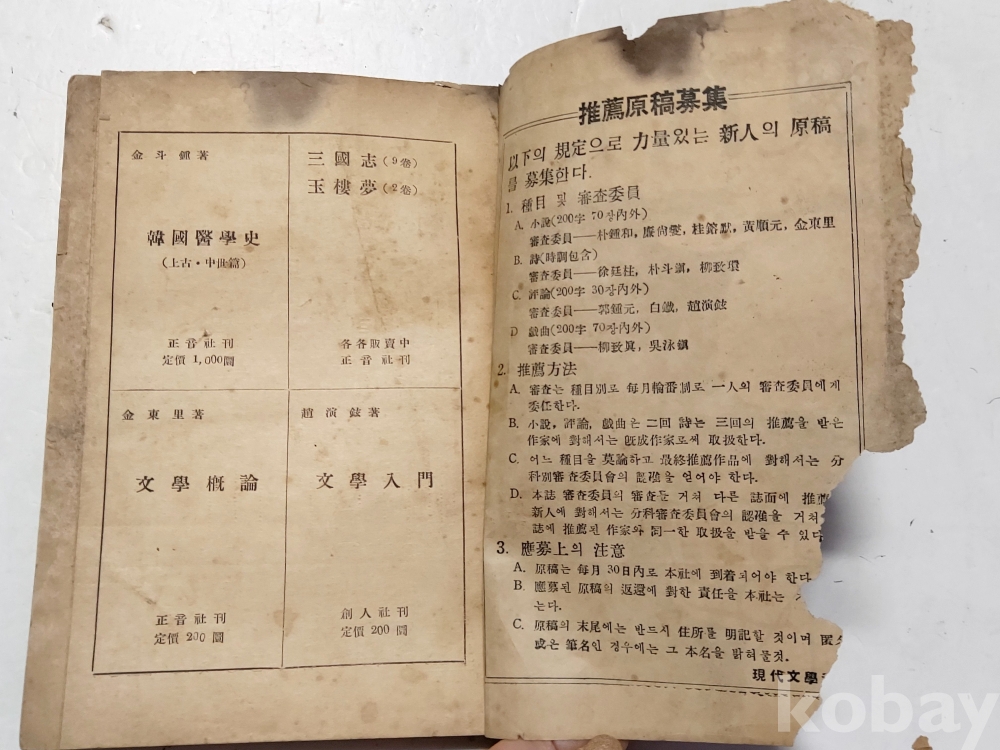 金斗鍾著
韓國醫學史
(上古・中世篇)
正音社刊
定價 1,000圜
三國志(9卷)
玉樓夢(2卷)
各各販賣中
正音社刊
金東里著
文學槪論
正音社刊
定價 200圜
趙演鉉著
文學入門
創人社刊
定價 200圜
推薦原稿募集
以下의 規定으로 力量있는 新人의 原稿
를 募集한다.
1. 種目 및 審査委員
A. 小說(200字 70장內外)
審査委員——朴鍾和, 廉尙燮, 桂鎔默, 黃順元, 金東里
B. 詩(時調包含)
審査委員——徐廷柱, 朴斗鎭, 柳致環
C. 評論(200字 30장內外)
審査委員——郭鍾元, 白鐵, 趙演鉉
D 戱曲(200字 70장內外)
審査委員——柳致眞, 吳泳鎭
2. 推薦方法
A. 審査는 種目別로 每月輪番制로 一人의 審査委員에게
委任한다.
B. 小說, 評論, 戱曲은 二回 詩는 三回의 推薦을 받은
作家에 對해서는 旣成作家로써 取扱한다.
C. 어느 種目을 莫論하고 最終推薦作品에 對해서는 分
科別審査委員會의 認准을 얻어야 한다.
D. 本誌 審査委員의 審査를 거쳐 다른 誌面에 推薦
新人에 對해서는 分科審査委員會의 認准을 거쳐
誌에 推薦된 作家와 同一한 取扱을 받을 수 있다
3. 應募上의 注意
A. 原稿는 每月 30日內로 本社에 到着되어야 한다
B. 應募된 原稿의 返還에 對한 責任을 本社는
는다.
C. 原稿의 末尾에는 반드시 住所를 明記할 것이며 匿名
或은 筆名인 경우에는 그 本名을 밝혀둘것.
現代文學
kobay